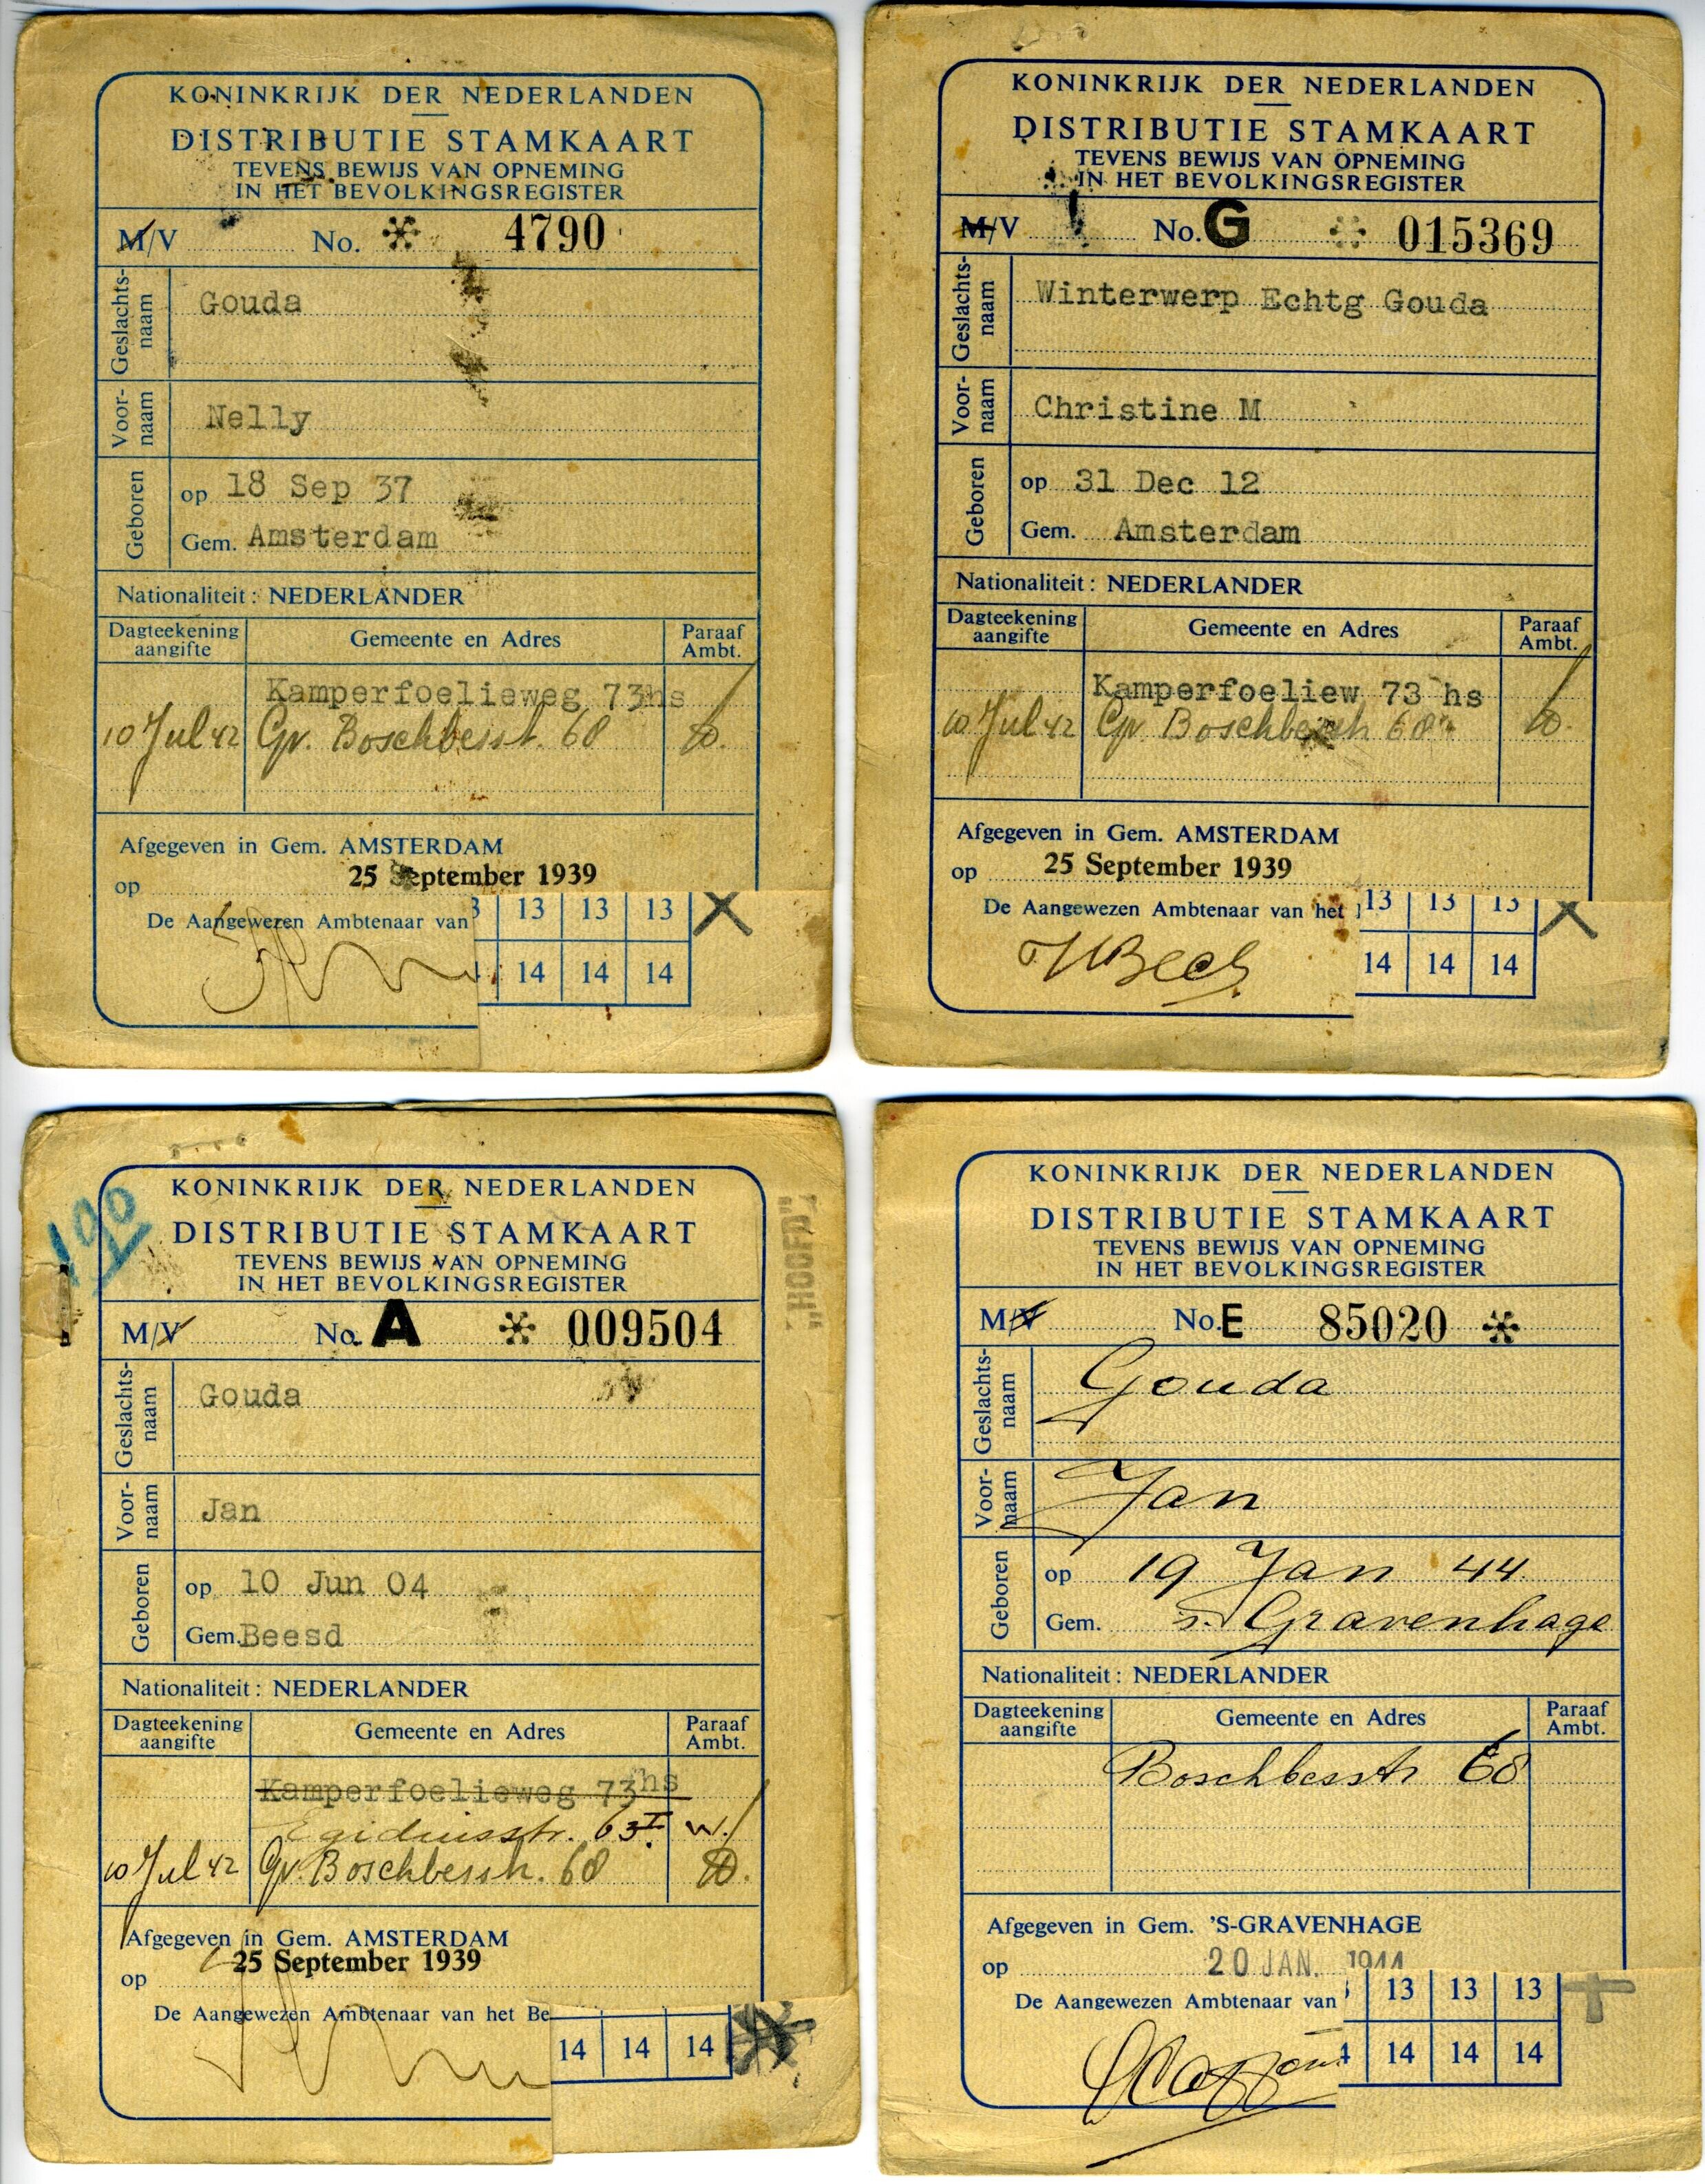 KONINKRIJK DER NEDERLANDEN
DISTRIBUTIE STAMKAART
TEVENS BEWIJS VAN OPNEMING
IN HET BEVOLKINGSREGISTER
M/V No. 4790
Geslachts-
naam
Gouda
Voor-
naam
Nelly
Geboren
op 18 Sep 37
Gem. Amsterdam
Nationaliteit: NEDERLANDER
Dagteekening
aangifte
Gemeente en Adres
Paraaf
Ambt.
Kamperfoelieweg 73hs
10 Jul 42 Gr. Boschbesst. 68
Afgegeven in Gem. AMSTERDAM
op 25 September 1939
De Aangewezen Ambtenaar van
13 13 13
14 14 14
KONINKRIJK DER NEDERLANDEN
DISTRIBUTIE STAMKAART
TEVENS BEWIJS VAN OPNEMING
IN HET BEVOLKINGSREGISTER
M/V No. G 015369
Geslachts-
naam
Winterwerp Echtg Gouda
Voor-
naam
Christine M
Geboren
op 31 Dec 12
Gem. Amsterdam
Nationaliteit: NEDERLANDER
Dagteekening
aangifte
Gemeente en Adres
Paraaf
Ambt.
Kamperfoeliew 73 hs
10 Jul 42 Gr Boschbesstr 68
Afgegeven in Gem. AMSTERDAM
op 25 September 1939
De Aangewezen Ambtenaar van het
13 13 13
14 14 14
190
KONINKRIJK DER NEDERLANDEN
DISTRIBUTIE STAMKAART
TEVENS BEWIJS VAN OPNEMING
IN HET BEVOLKINGSREGISTER
„HOOFD”
M/V No. A 009504
Geslachts-
naam
Gouda
Voor-
naam
Jan
Geboren
op 10 Jun 04
Gem. Beesd
Nationaliteit: NEDERLANDER
Dagteekening
aangifte
Gemeente en Adres
Paraaf
Ambt.
Kamperfoelieweg 73hs
Egidiusstr. 63 I W.
10 Jul 42 Gr. Boschbesstr. 68
Afgegeven in Gem. AMSTERDAM
op 25 September 1939
De Aangewezen Ambtenaar van het Be
14 14 14
KONINKRIJK DER NEDERLANDEN
DISTRIBUTIE STAMKAART
TEVENS BEWIJS VAN OPNEMING
IN HET BEVOLKINGSREGISTER
M/V No. E 85020
Geslachts-
naam
Gouda
Voor-
naam
Jan
Geboren
op 19 Jan 44
Gem. s. Gravenhage
Nationaliteit: NEDERLANDER
Dagteekening
aangifte
Gemeente en Adres
Paraaf
Ambt.
Boschbesstr 68
Afgegeven in Gem. 'S-GRAVENHAGE
op 20 JAN. 1944
De Aangewezen Ambtenaar van
13 13 13
14 14 14